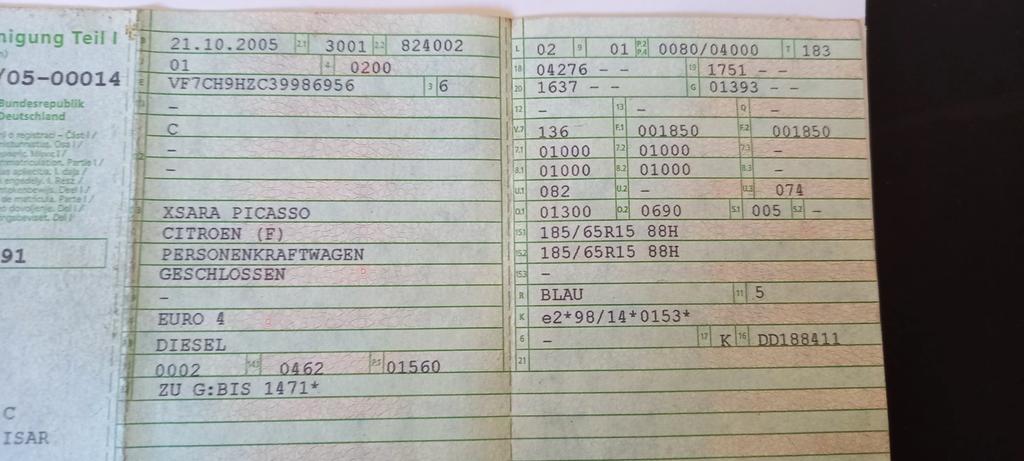 nigung Teil I
/05-00014
Bundesrepublik
Deutschland
91
C
ISAR
B 21.10.2005 2.1 3001 2.2 824002
J 01 4 0200
E VF7CH9HZC39986956 3 6
–
C
–
–
XSARA PICASSO
CITROEN (F)
PERSONENKRAFTWAGEN
GESCHLOSSEN
–
EURO 4
DIESEL
0002 14.1 0462 P.1 01560
ZU G:BIS 1471*
L 02 9 01 P.2 P.4 0080/04000 T 183
18 04276 – – 19 1751 – –
20 1637 – – G 01393 – –
12 – 13 – Q –
V.7 136 F.1 001850 F.2 001850
7.1 01000 7.2 01000 7.3 –
8.1 01000 8.2 01000 8.3 –
U.1 082 U.2 – U.3 074
O.1 01300 O.2 0690 S.1 005 S.2 –
15.1 185/65R15 88H
15.2 185/65R15 88H
15.3 –
R BLAU 11 5
K e2*98/14*0153*
6 – 17 K 16 DD188411
21